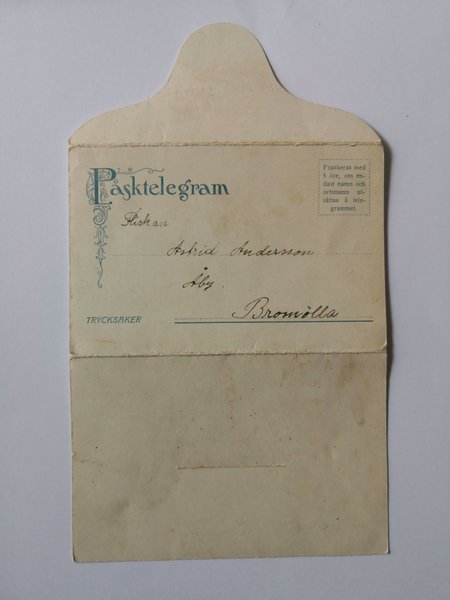 Påsktelegram
Frankeras med
5 öre, om en-
dast namn och
ortsnamn ut-
sättas å tele-
grammet.
Flickan
Astrid Andersson
Åby.
Bromölla
TRYCKSAKER